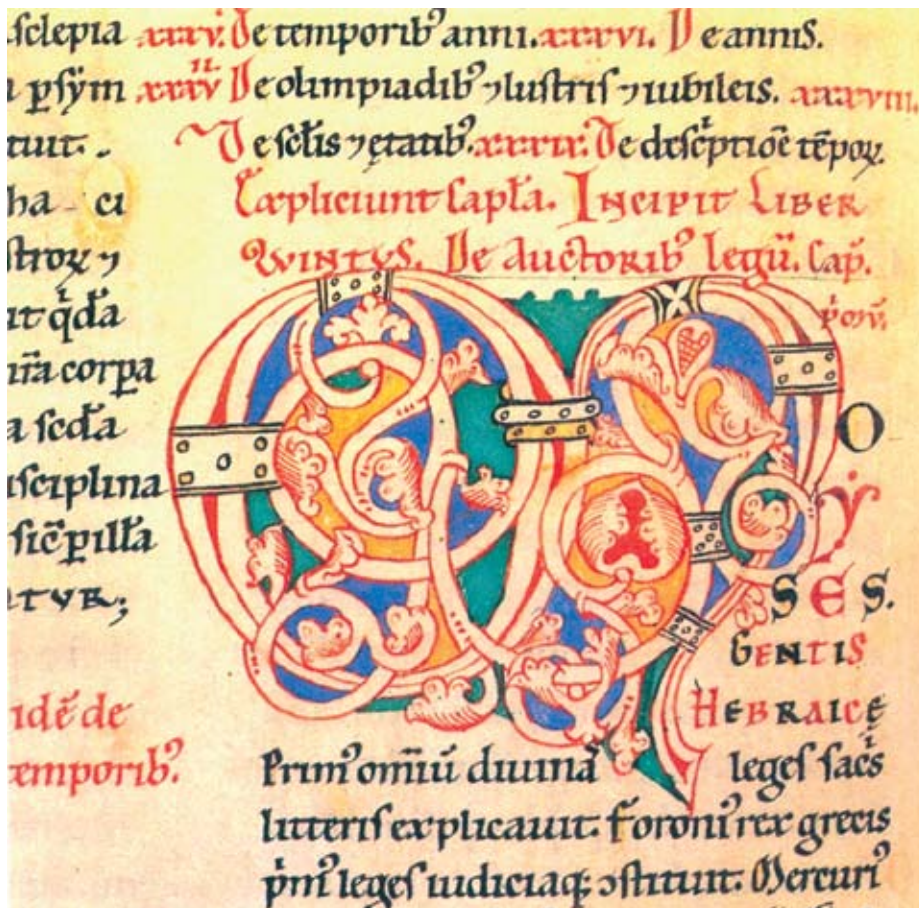 sclepia
ꝑsym
tuit.
ha ci
stroꝝ ⁊
it qͥdā
nr̄a corꝑa
a scd̄a
isciplina
sic̄ ꝑ illā
ntur;
idē de
temporibꝰ.
xxxv. De temporibꝰ anni. xxxvi. De annis.
xxxvii De olimpiadibꝰ ⁊ lustris ⁊ iubileis. xxxviii
De sclīs ⁊ ętatibꝰ. xxxix. De descͥptiōe tēpoꝝ.
Expliciunt capl̄a. Incipit liber
quintus. De auctoribꝰ legū. Cap̄.
pͥmū.
MO
Y
SES.
gentis
Hebraicę
Primꝰ omīū divinas leges sacͥs
litteris explicavit. Foroniꝰ rex grecis
pͥmꝰ leges iudiciaqꝫ ↄstituit. Mercuriꝰ